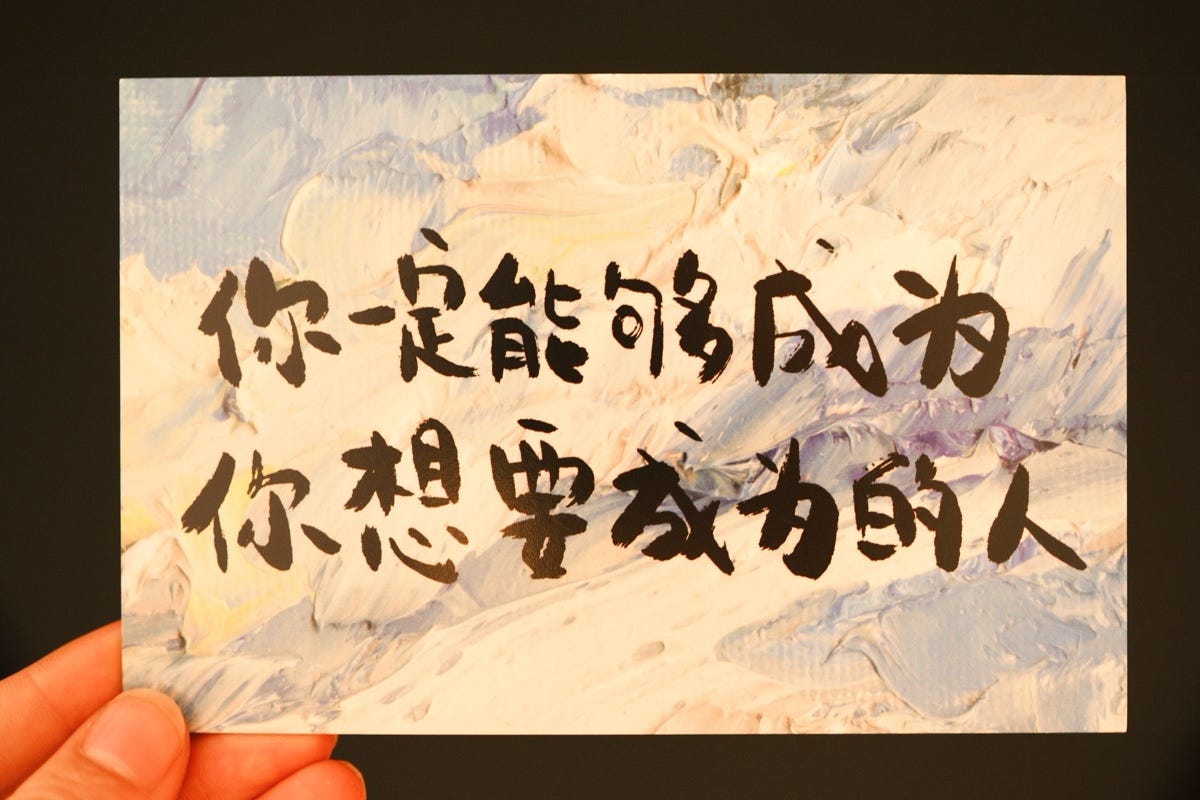 你一定能够成为
你想要成为的人